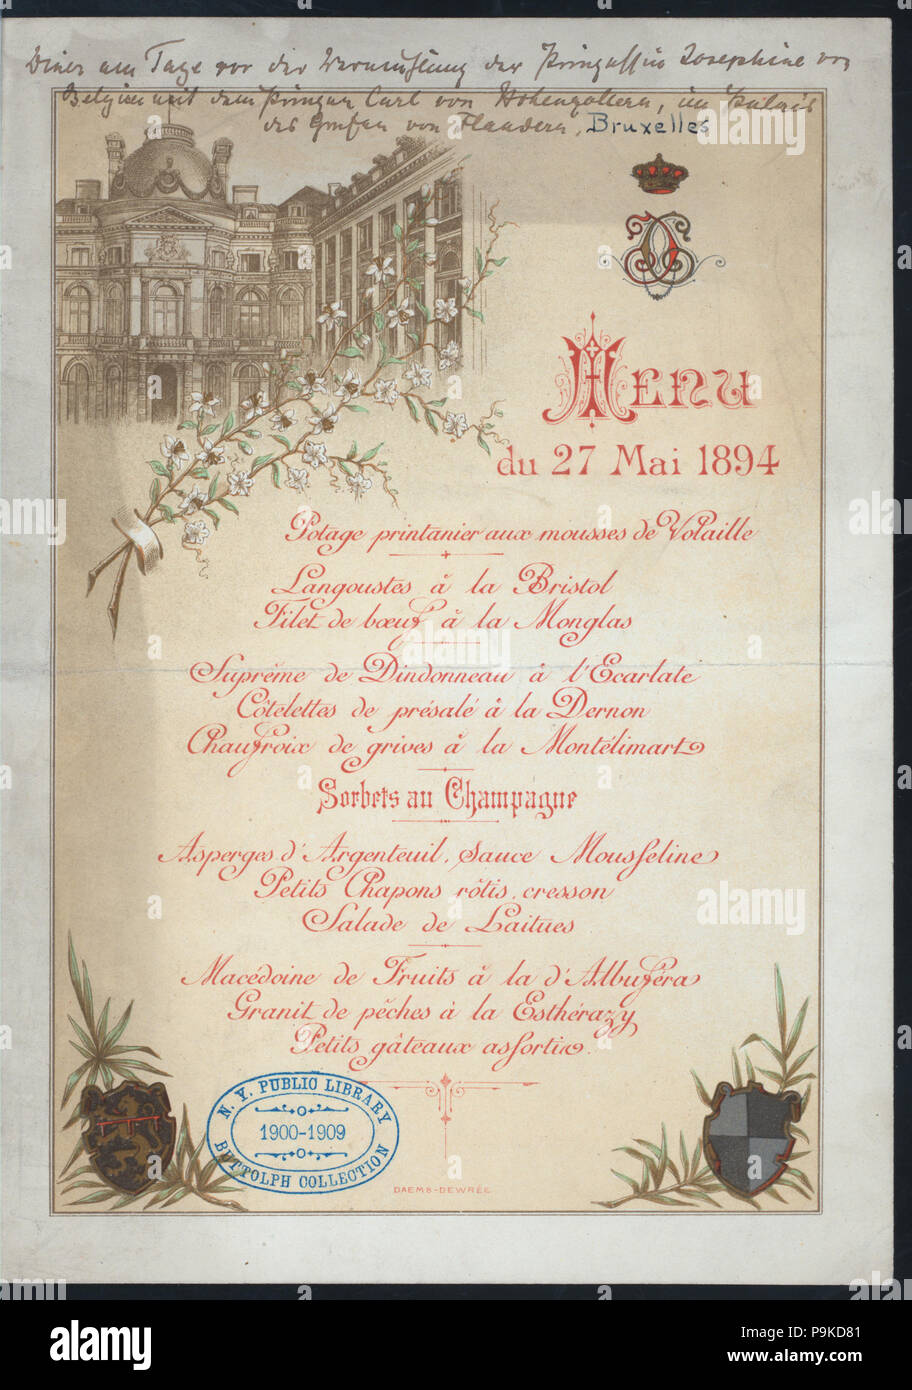 Diner am Tage vor der Vermählung der Prinzessin Josephine von
Belgien mit dem Prinzen Carl von Hohenzollern, im Palais
des Grafen von Flandern, Bruxelles
Menu
du 27 Mai 1894
Potage printanier aux mousses de Volaille
Langoustes à la Bristol
Filet de bœuf à la Monglas
Suprême de Dindonneau à l'Ecarlate
Côtelettes de présalé à la Dernon
Chaufroix de grives à la Montélimart
Sorbets au Champagne
Asperges d'Argenteuil, sauce Mousseline
Petits Chapons rôtis, cresson
Salade de Laitues
Macédoine de Fruits à la d'Albuféra
Granit de pêches à la Esthérazy
Petits gâteaux assortis.
N. Y. PUBLIC LIBRARY
1900-1909
BUTTOLPH COLLECTION
DAEMS-DEWRÉE
alamy
alamy
Image ID: P9KD81
www.alamy.com